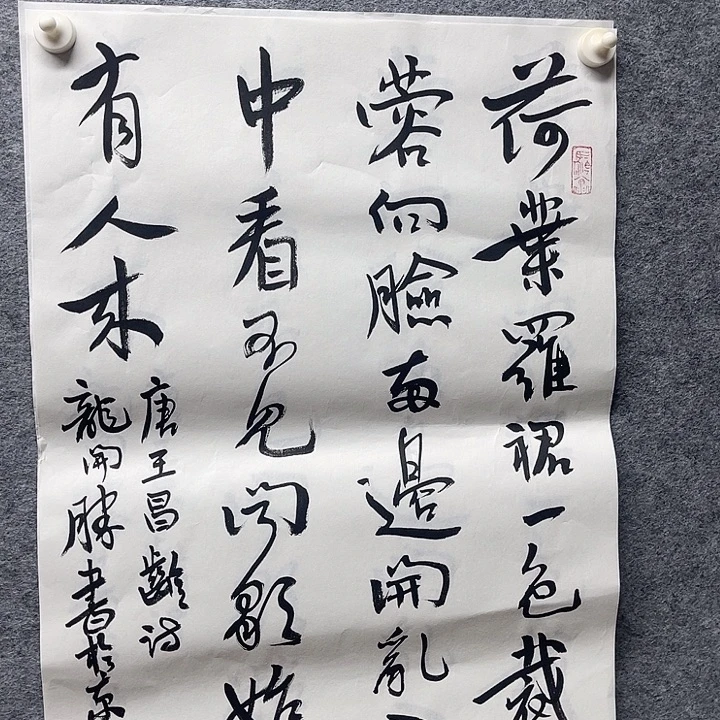 荷葉羅裙一色裁
蓉向臉兩邊開亂
中看不見聞歌始
有人来
唐王昌齡詩
龍開勝書於